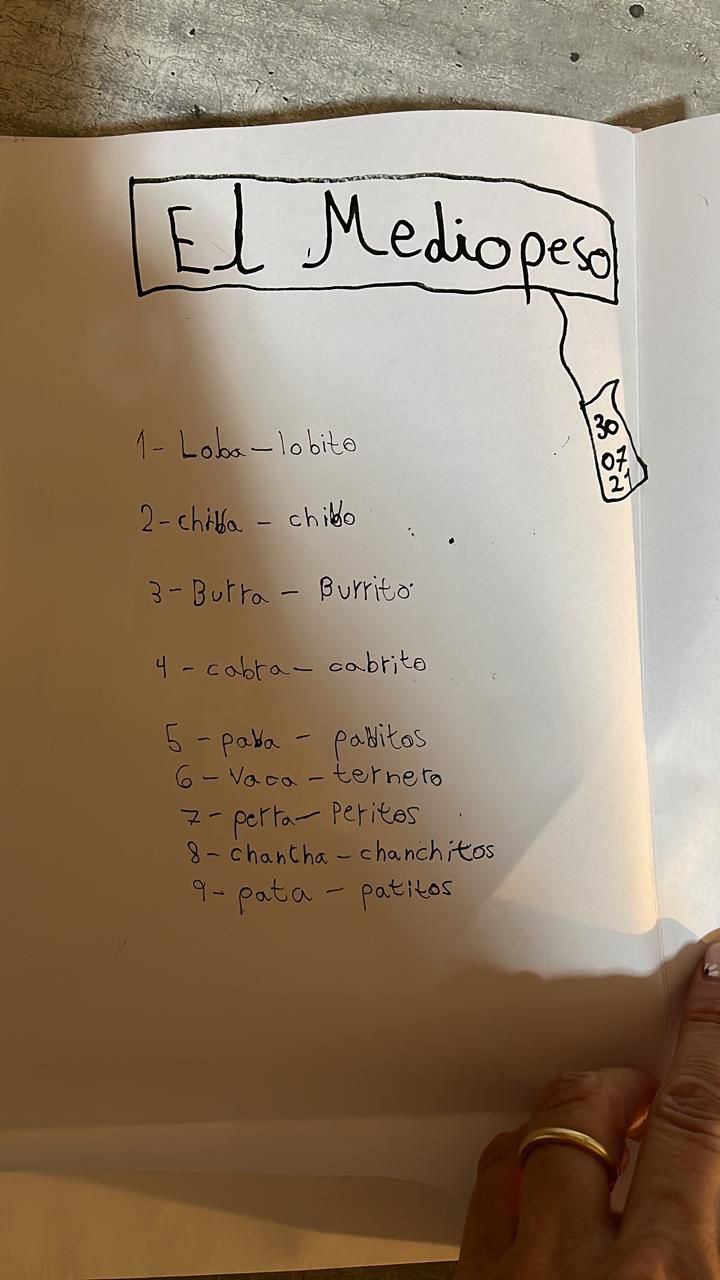 El Mediopeso
30
07
21
1- Loba - lobito
2- chiva - chivo
3- Burra - Burrito
4 - cabra - cabrito
5 - pava - pavitos
6 - Vaca - ternero
7 - perra - Peritos
8 - chancha - chanchitos
9 - pata - patitos